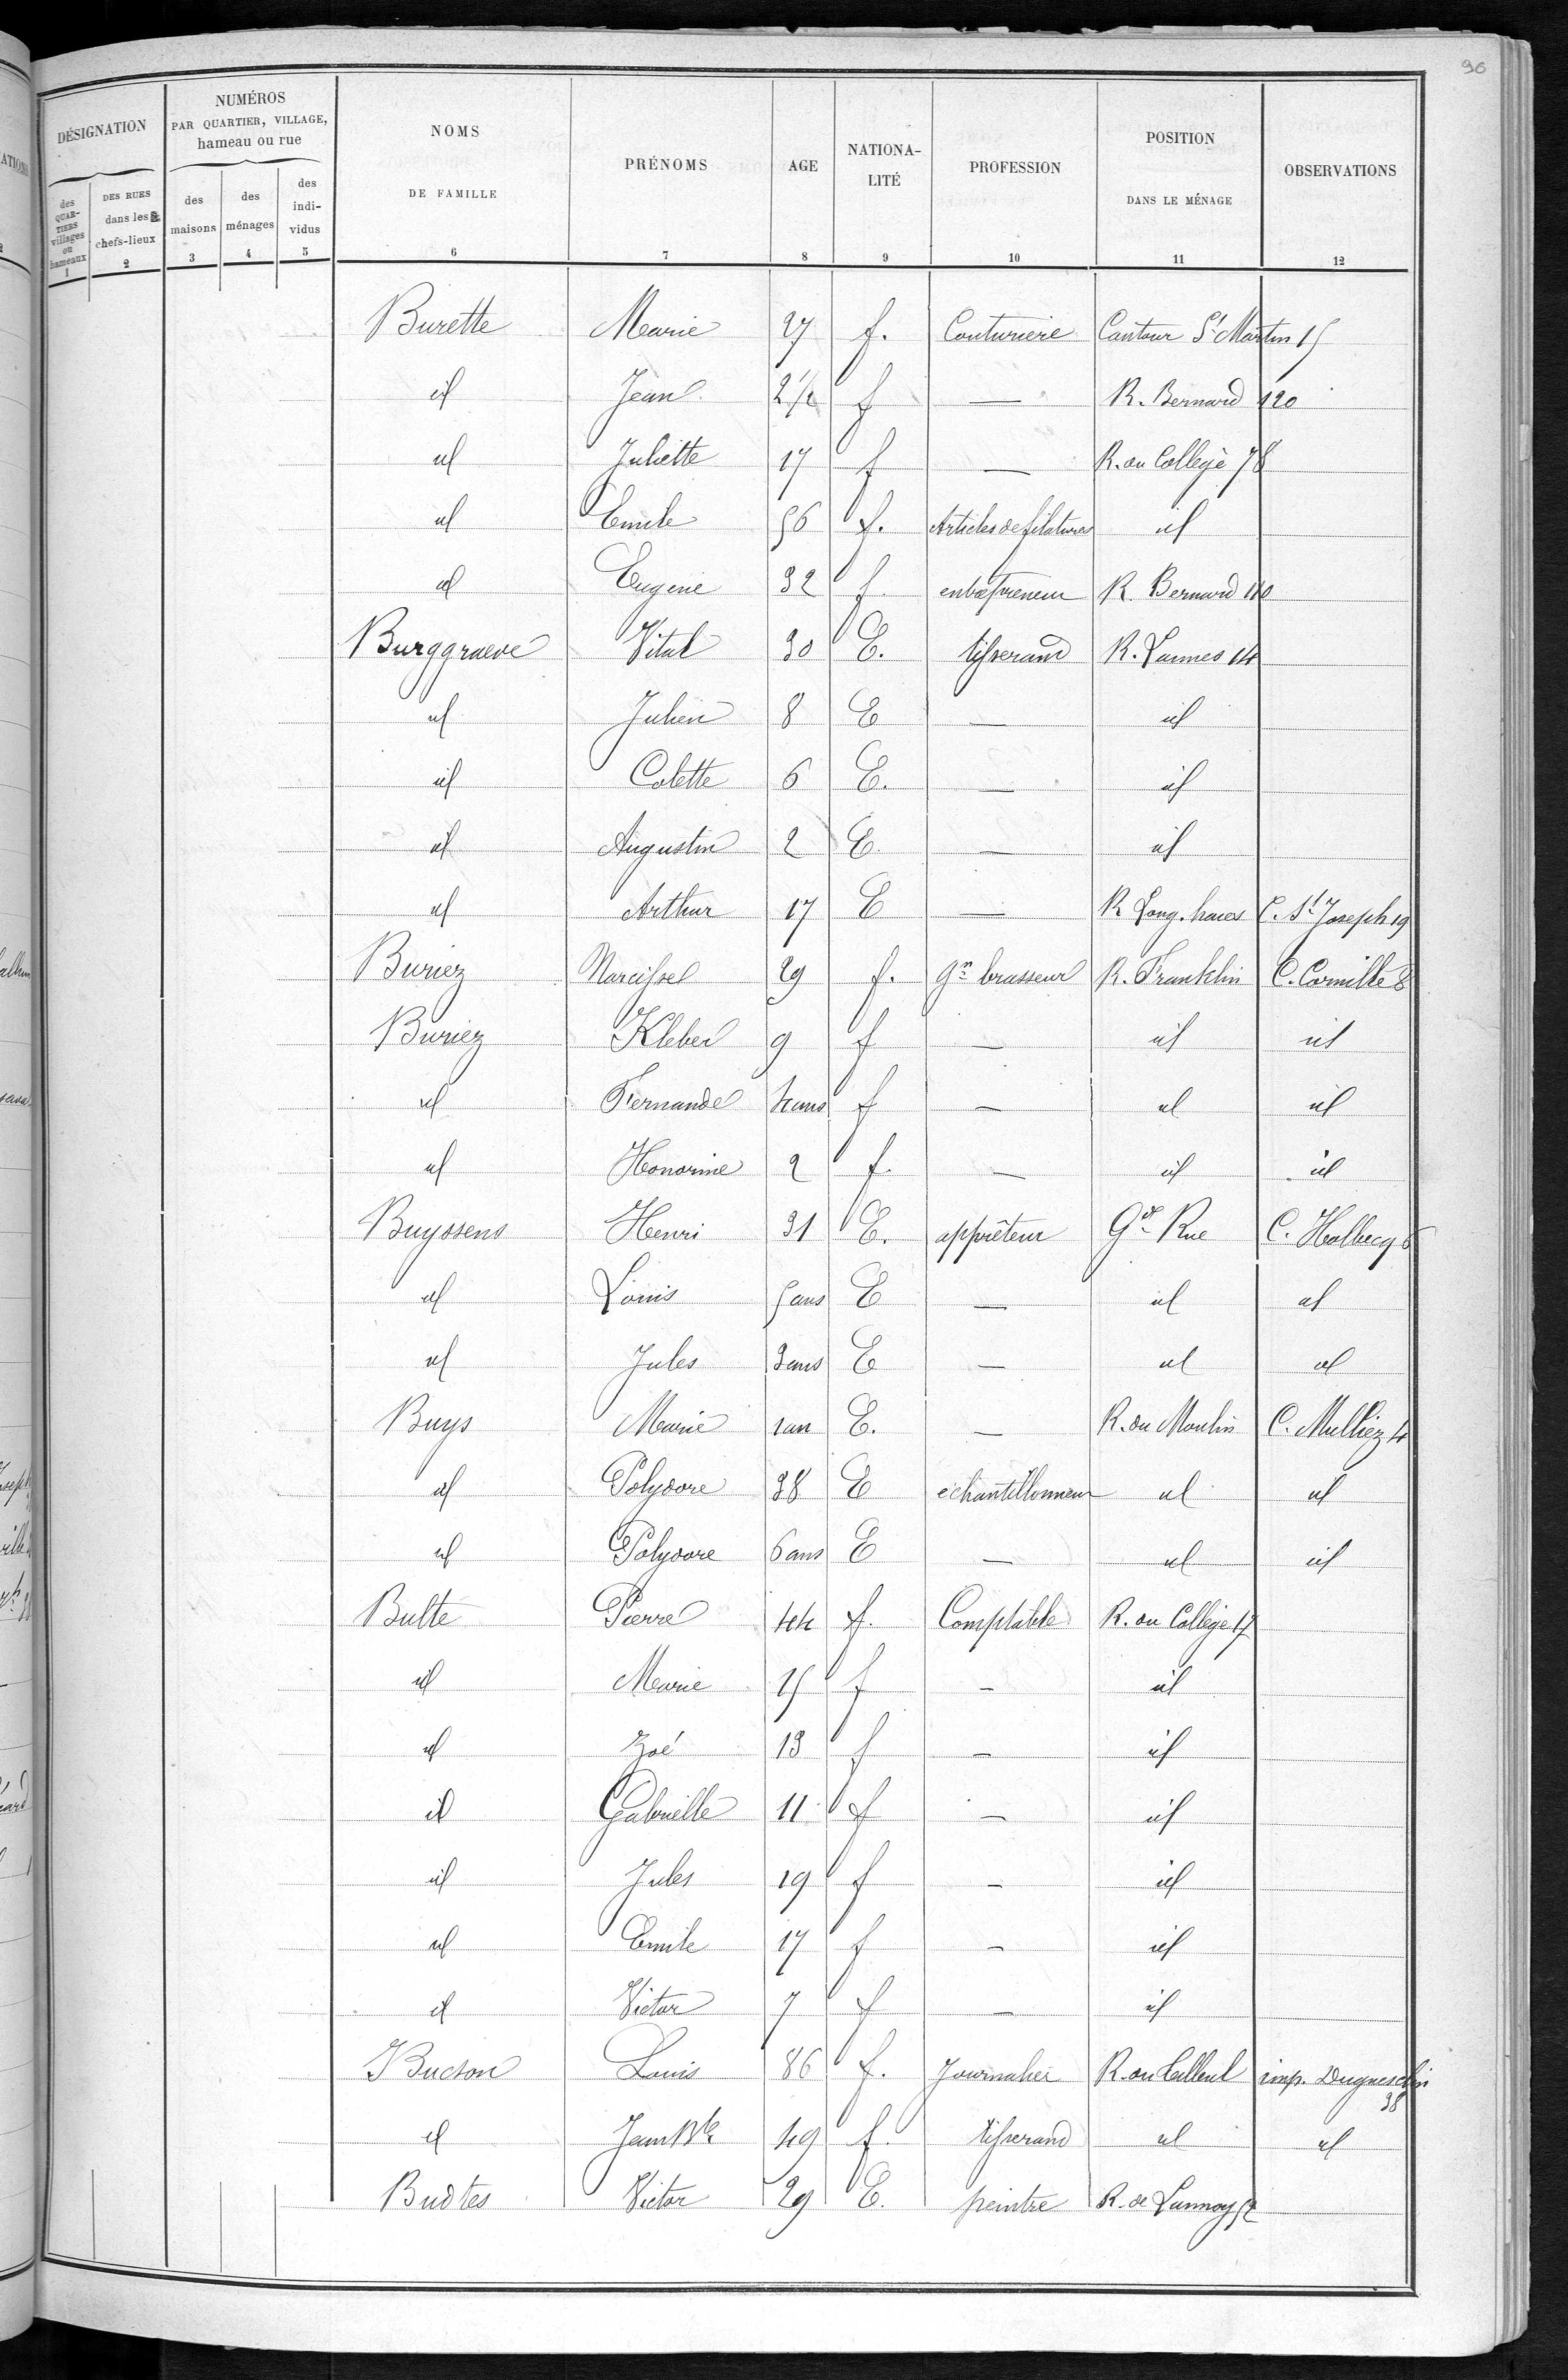 96
DÉSIGNATION
NUMÉROS
PAR QUARTIER, VILLAGE,
hameau ou rue
NOMS
DE FAMILLE
PRÉNOMS
AGE
NATIONA-
LITÉ
PROFESSION
POSITION
DANS LE MÉNAGE
OBSERVATIONS
des
QUAR-
TIERS
villages
ou
hameaux
DES RUES
dans les
chefs-lieux
des
maisons
des
ménages
des
indi-
vidus
1 2 3 4 5 6 7 8 9 10 11 12
Burette Marie 27 f. Couturière Contour St Martin 15
id Jean 2 1/2 f — R. Bernard 120
id Juliette 17 f — R. du Collège 78
id Emile 56 f. Articles de filatures id
id Eugène 32 f. entrepreneur R. Bernard 110
Burggraeve Vital 30 E. tisserand R. Lannes 14
id Julien 8 E — id
id Colette 6 E. — id
id Augustin 2 E — id
id Arthur 17 E — R Long. haies C. St Joseph 19
Buriez Narcisse 29 f. gn brasseur R. Franklin C. Cornille 8
Buriez Kleber 9 f — id id
id Fernande 4 ans f — id id
id Honorine 2 f. — id id
Buyssens Henri 31 E. apprêteur Gde Rue C. Halbecq 6
id Louis 5 ans E — id id
id Jules 3 ans E — id id
Buys Marie 1 an E. — R. du Moulin C. Mulliez 4
id Polydore 38 E échantillonneur id id
id Polydore 6 ans E — id id
Bulte Pierre 44 f. Comptable R. du Collège 17
id Marie 15 f — id
id Zoé 13 f — id
id Gabrielle 11 f — id
id Jules 19 f — id
id Emile 17 f — id
id Victor 7 f — id
Bucson Louis 86 f. Journalier R. du Tilleul imp. Duguesclin
38
id Jean Bte 49 f. tisserand id id
Budtes Victor 29 E. peintre R. de Lannoy 52